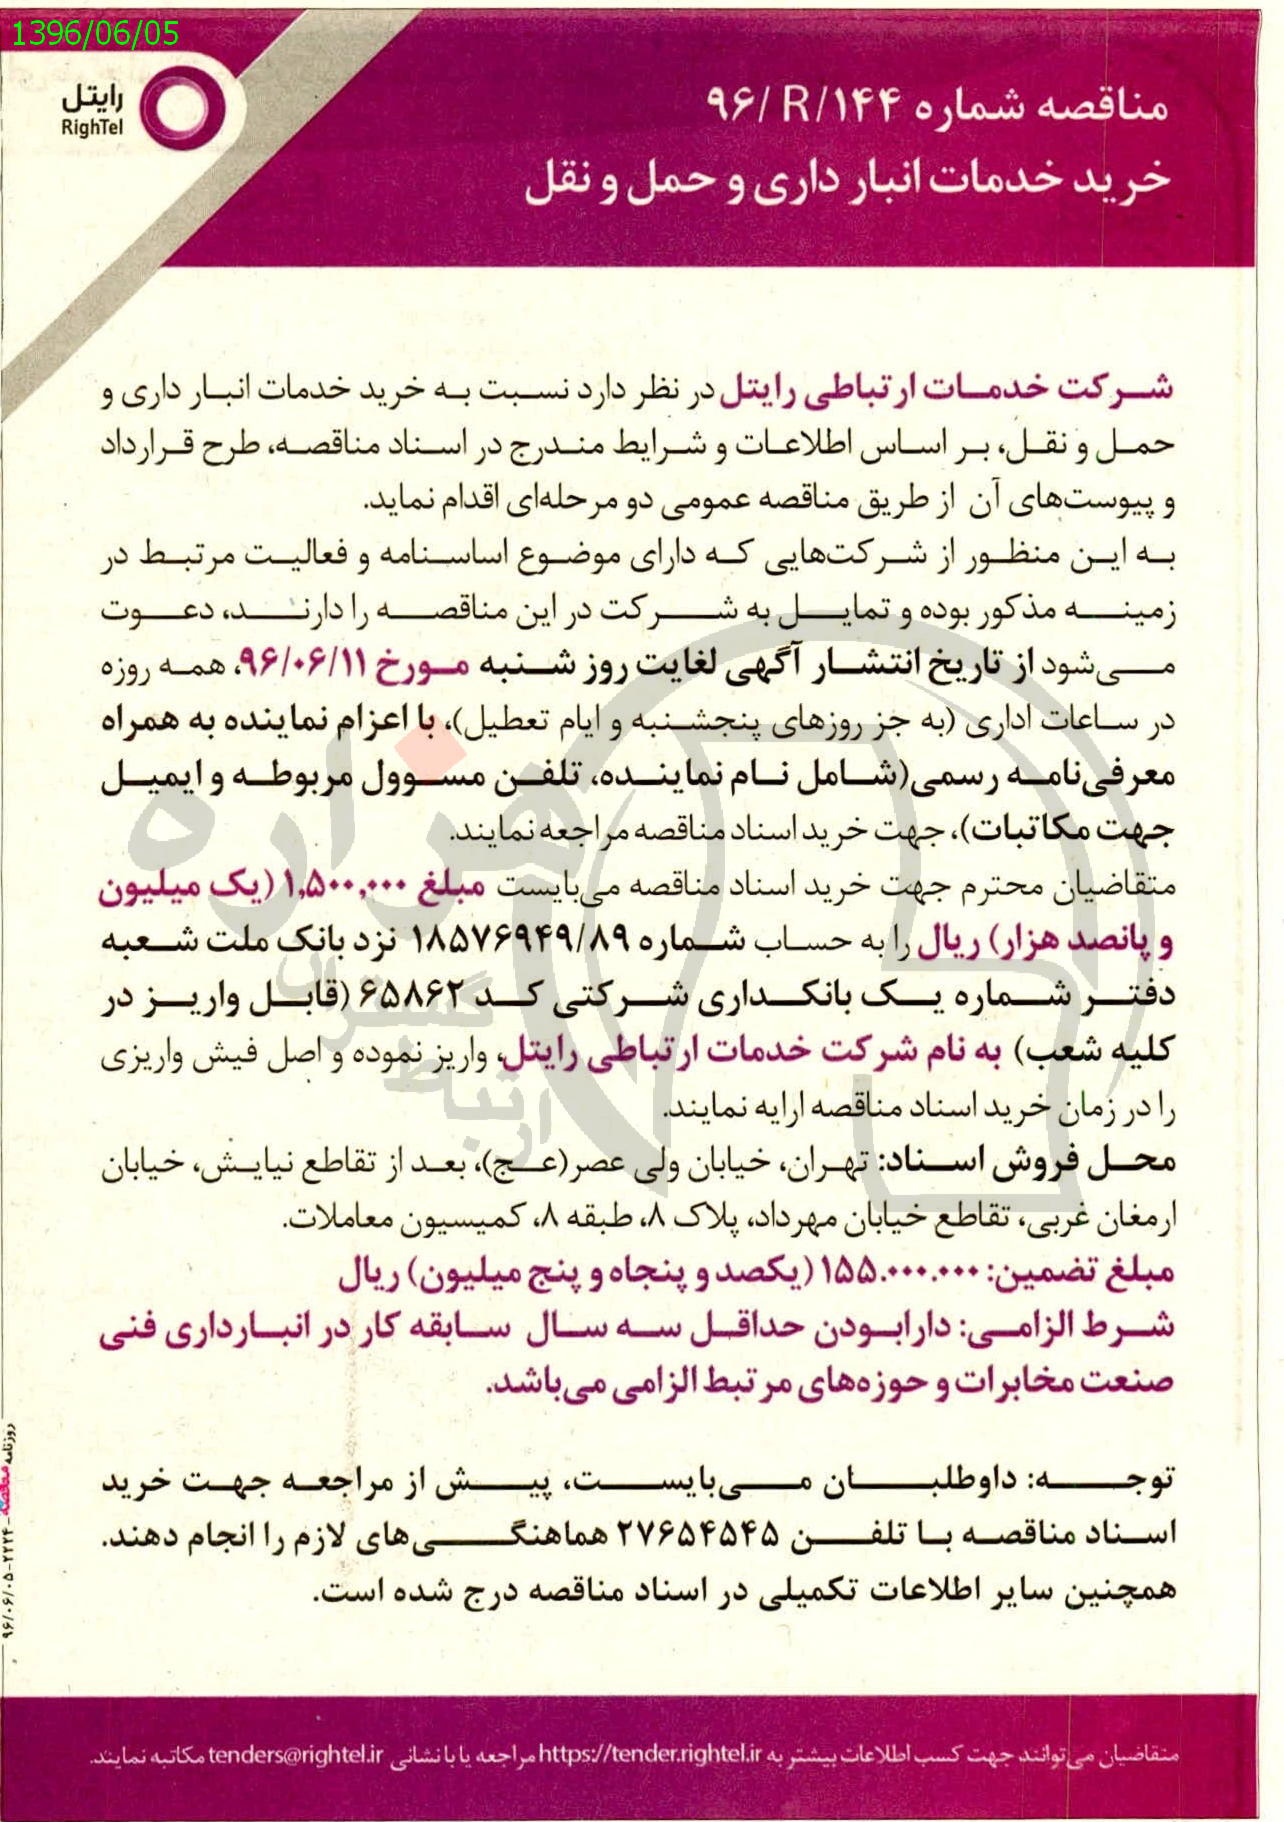 1396/06/05
رایتل
RighTel
مناقصه شماره ۹۶/ R/۱۴۴
خرید خدمات انبار داری و حمل و نقل
شرکت خدمات ارتباطی رایتل در نظر دارد نسبت به خرید خدمات انبار داری و
حمل و نقل، بر اساس اطلاعات و شرایط مندرج در اسناد مناقصه، طرح قرارداد
و پیوست‌های آن از طریق مناقصه عمومی دو مرحله‌ای اقدام نماید.
به این منظور از شرکت‌هایی که دارای موضوع اساسنامه و فعالیت مرتبط در
زمینه مذکور بوده و تمایل به شرکت در این مناقصه را دارند، دعوت
می‌شود از تاریخ انتشار آگهی لغایت روز شنبه مورخ ۹۶/۰۶/۱۱، همه روزه
در ساعات اداری (به جز روزهای پنجشنبه و ایام تعطیل)، با اعزام نماینده به همراه
معرفی‌نامه رسمی(شامل نام نماینده، تلفن مسوول مربوطه و ایمیل
جهت مکاتبات)، جهت خرید اسناد مناقصه مراجعه نمایند.
متقاضیان محترم جهت خرید اسناد مناقصه می‌بایست مبلغ ۱,۵۰۰,۰۰۰ (یک میلیون
و پانصد هزار) ریال را به حساب شماره ۱۸۵۷۶۹۴۹/۸۹ نزد بانک ملت شعبه
دفتر شماره یک بانکداری شرکتی کد ۶۵۸۶۲ (قابل واریز در
کلیه شعب) به نام شرکت خدمات ارتباطی رایتل، واریز نموده و اصل فیش واریزی
را در زمان خرید اسناد مناقصه ارایه نمایند.
محل فروش اسناد: تهران، خیابان ولی عصر(عج)، بعد از تقاطع نیایش، خیابان
ارمغان غربی، تقاطع خیابان مهرداد، پلاک ۸، طبقه ۸، کمیسیون معاملات.
مبلغ تضمین: ۱۵۵.۰۰۰.۰۰۰ (یکصد و پنجاه و پنج میلیون) ریال
شرط الزامی: دارابودن حداقل سه سال سابقه کار در انبارداری فنی
صنعت مخابرات و حوزه‌های مرتبط الزامی می‌باشد.
توجه: داوطلبان می‌بایست، پیش از مراجعه جهت خرید
اسناد مناقصه با تلفن ۲۷۶۵۴۵۴۵ هماهنگی‌های لازم را انجام دهند.
همچنین سایر اطلاعات تکمیلی در اسناد مناقصه درج شده است.
متقاضیان می‌توانند جهت کسب اطلاعات بیشتر به https://tender.rightel.ir مراجعه یا با نشانی tenders@rightel.ir مکاتبه نمایند.
روزنامه مناقصه -۲۲۲۴-۹۶/۰۶/۰۵
هزاره
گسترش
ارتباط